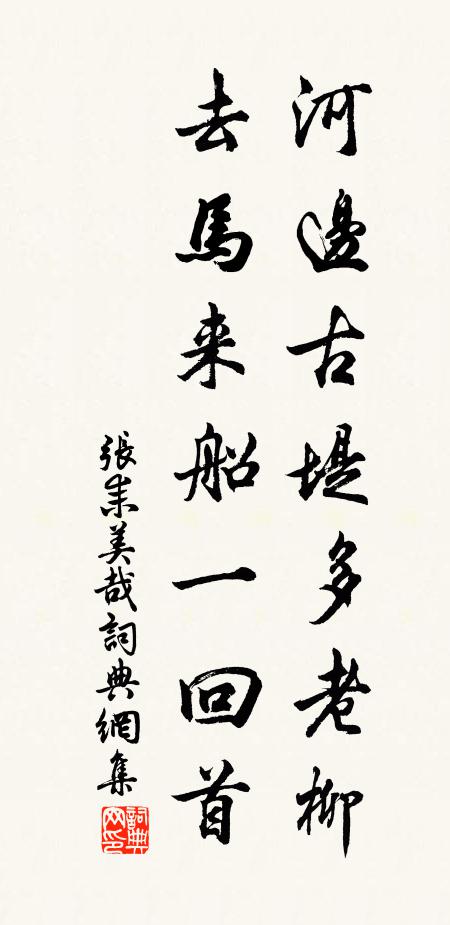 河邊古堤多老柳
去馬来船一回首
張耒美哉詞典網集
詞典网印